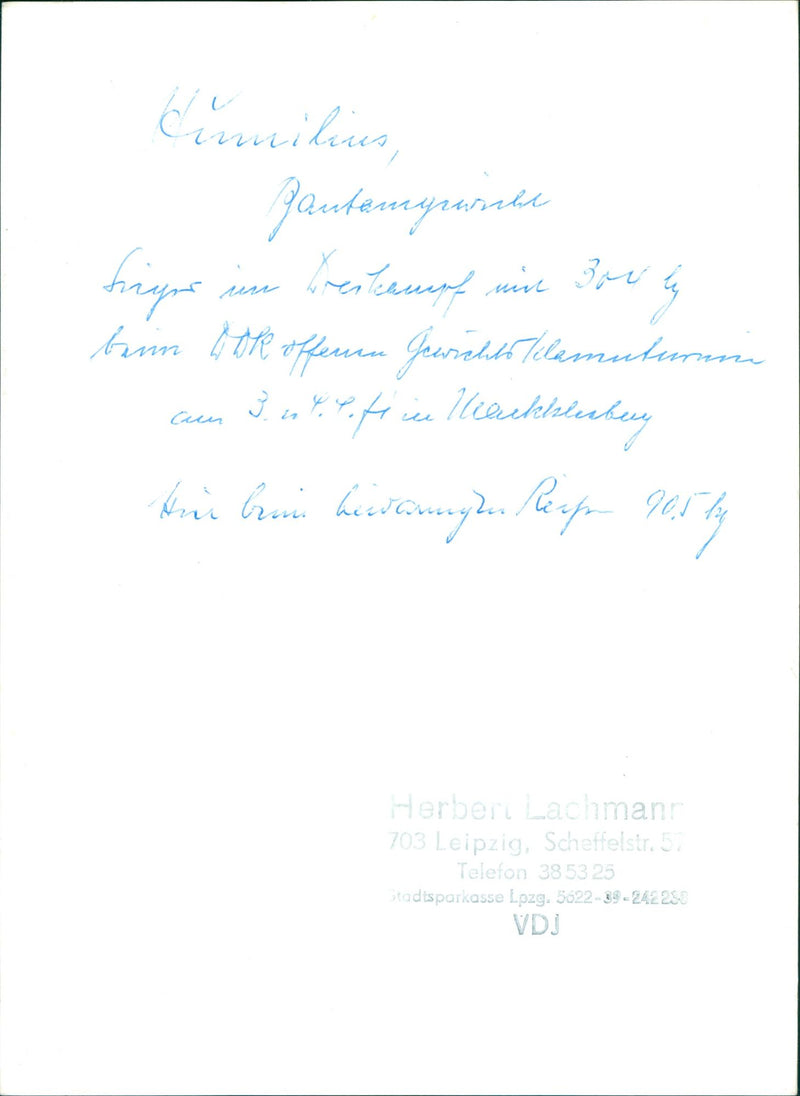 Hümilius,
Bantamgewicht
Sieger im Dreikampf mit kg
beim DDR offenen Gewichts Klassenturnier
am 3. u 4. 4. in Markkleeberg
Hier beim Reißen 90,5 kg
Herbert Lachmann
703 Leipzig, Scheffelstr. 57
Telefon 38 53 25
Stadtsparkasse Lpzg. 5622-39-242230
VDJ